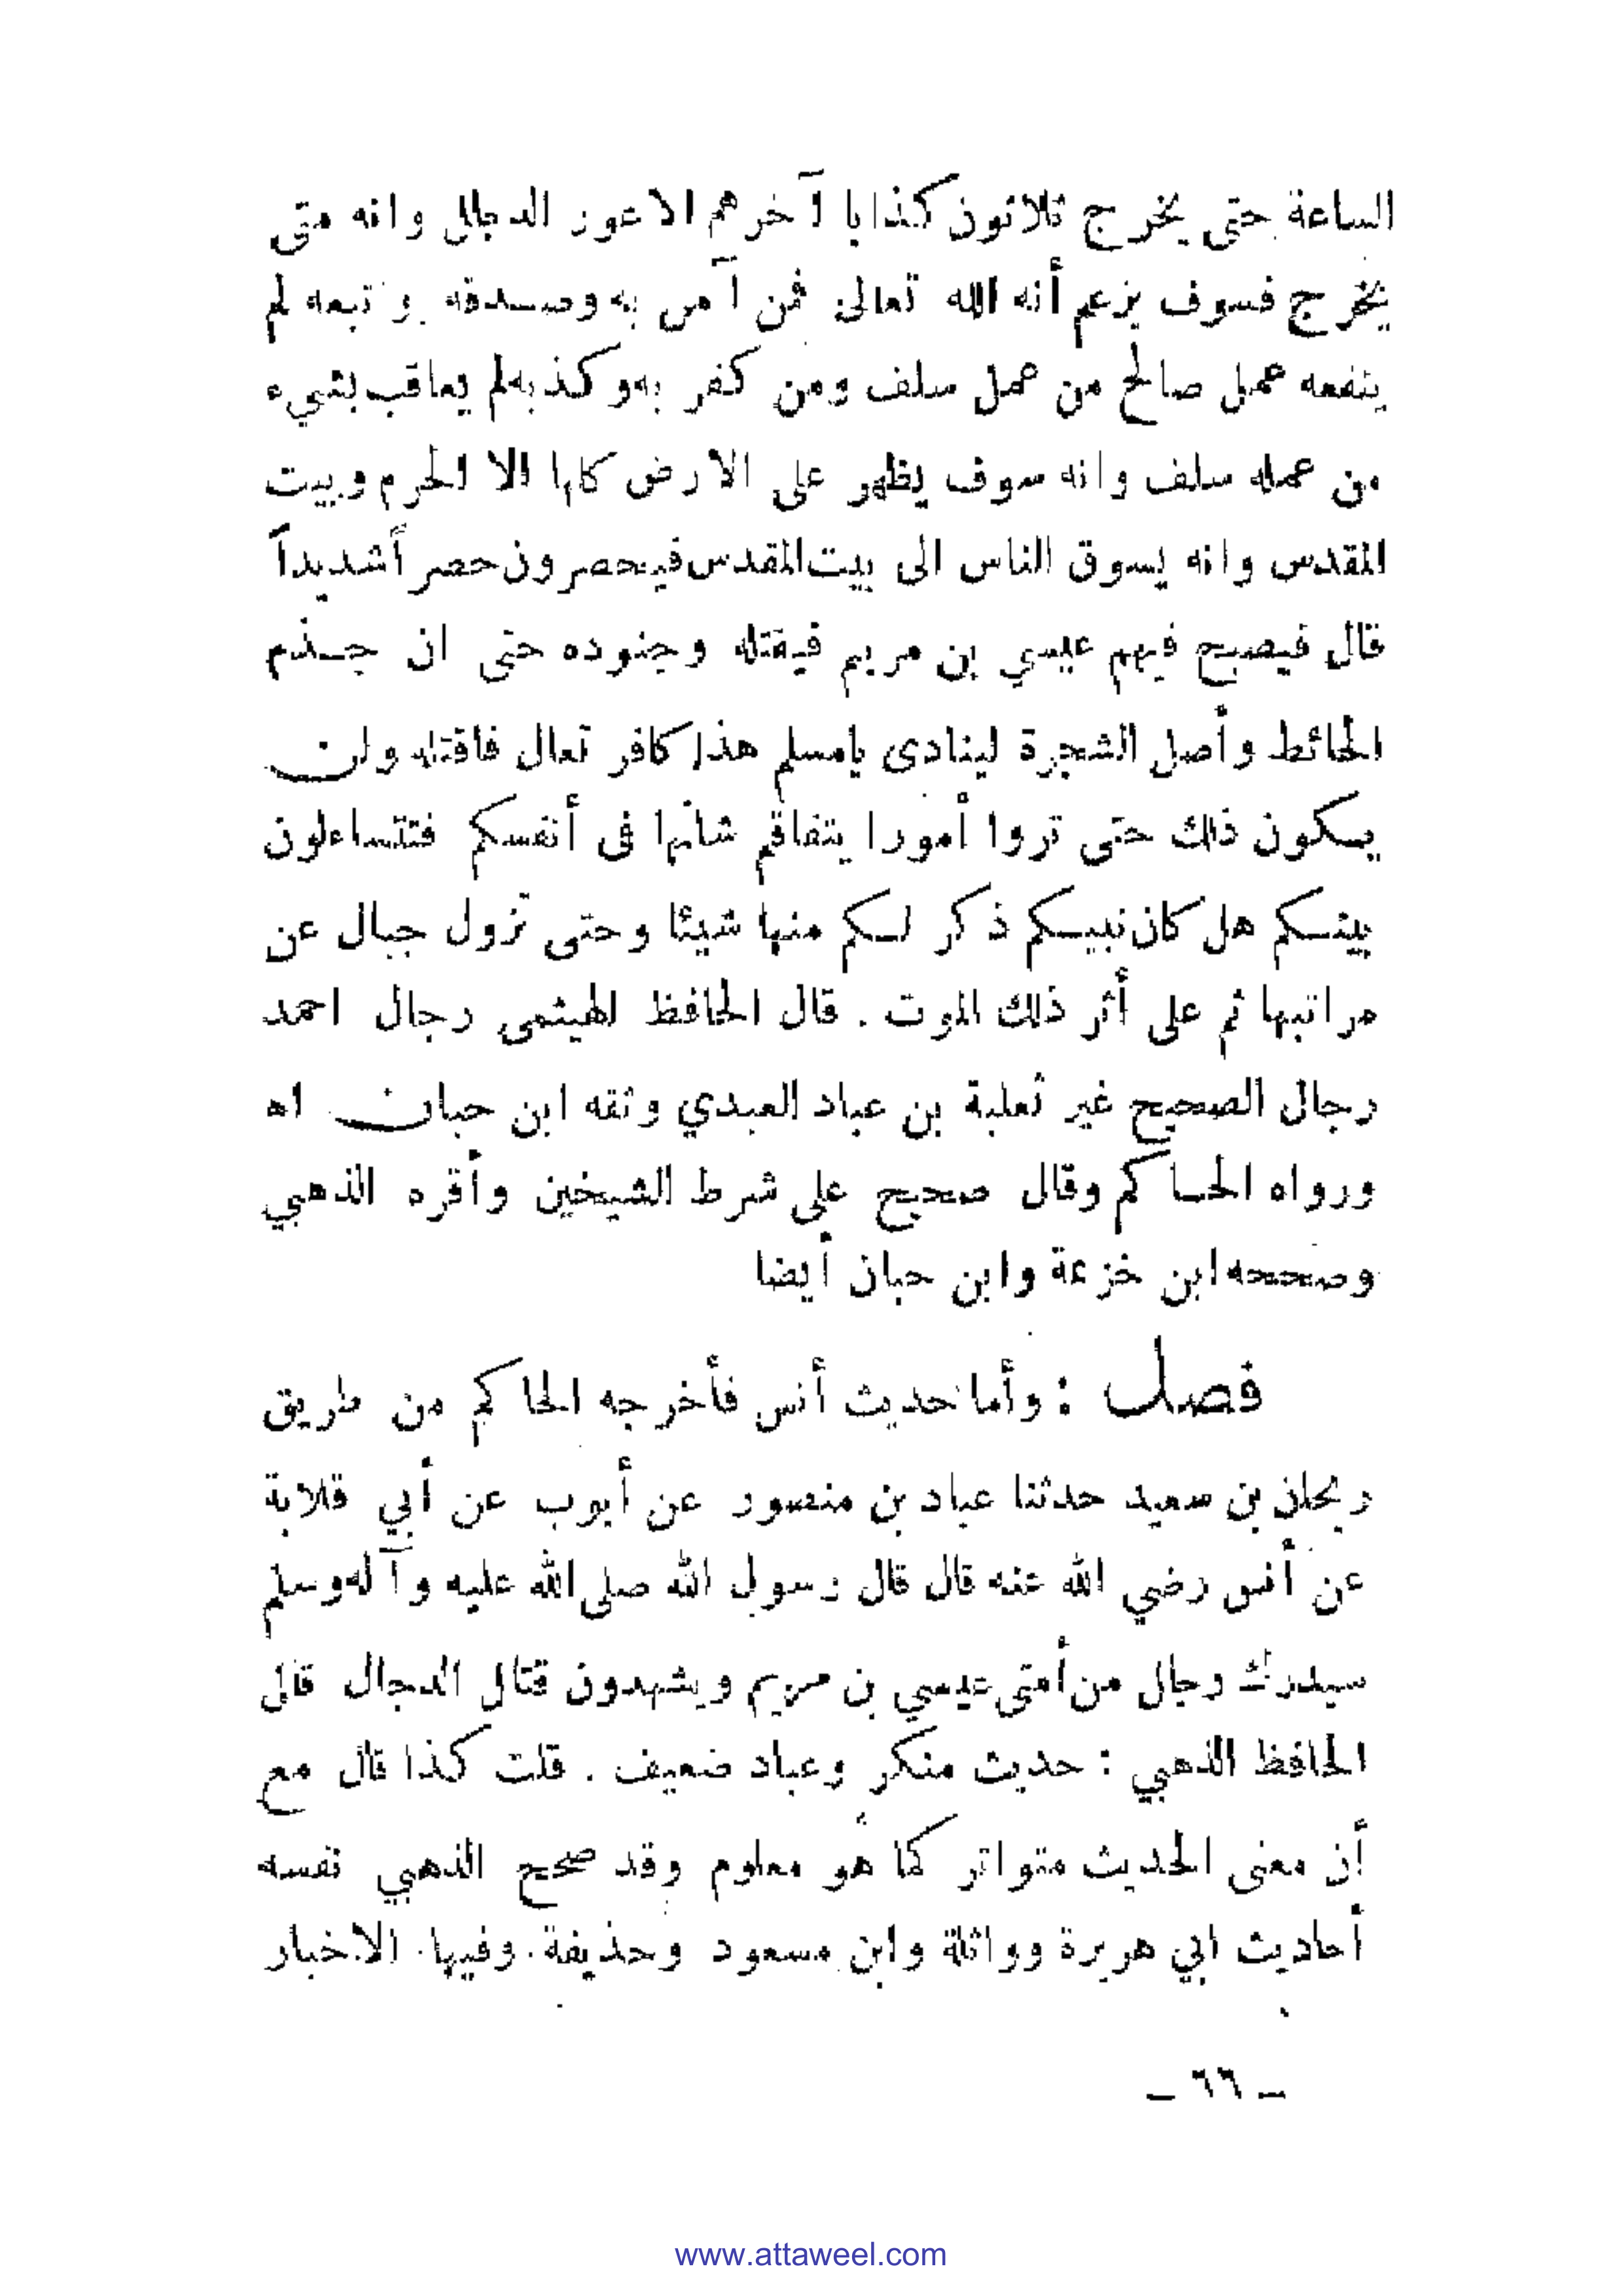 الساعة حتى يخرج ثلاثون كذابا آخرهم الاعور الدجال وانه متى
يخرج فسوف يزعم أنه الله تعالى فمن آمن به وصدقه واتبعه لم
ينفعه عمل صالح من عمل سلف ومن كفر به وكذبه لم يعاقب بشيء
من عمله سلف وانه سوف يظهر على الارض كلها الا الحرم وبيت
المقدس وانه يسوق الناس الى بيت المقدس فيحصرون حصراً شديداً
قال فيصبح فيهم عيسي بن مريم فيقتله وجنوده حتى ان جذم
الحائط وأصل الشجرة لينادى يامسلم هذا كافر تعال فاقتله ولن
يكون ذلك حتى تروا أمورا يتفاقم شانها فى أنفسكم فتتساءلون
بينكم هل كان نبيكم ذكر لكم منها شيئا وحتى تزول جبال عن
مراتبها ثم على أثر ذلك الموت . قال الحافظ الهيثمى رجال احمد
رجال الصحيح غير ثعلبة بن عباد العبدي وثقه ابن حبان اه
ورواه الحاكم وقال صحيح على شرط الشيخين وأقره الذهبي
وصححه ابن خزيمة وابن حبان أيضا
فصل : وأما حديث أنس فأخرجه الحاكم من طريق
ريحان بن سعيد حدثنا عباد بن منصور عن أيوب عن أبي قلابة
عن أنس رضي الله عنه قال قال رسول الله صلى الله عليه وآله وسلم
سيدرك رجال من أمتى عيسي بن مريم ويشهدون قتال الدجال قال
الحافظ الذهبي : حديث منكر وعباد ضعيف . قلت كذا قال مع
أن معنى الحديث متواتر كما هو معلوم وقد صحح الذهبي نفسه
أحاديث ابي هريرة وواثلة وابن مسعود وحذيفة وفيها الاخبار
ـ ٦٦ ـ
www.attaweel.com